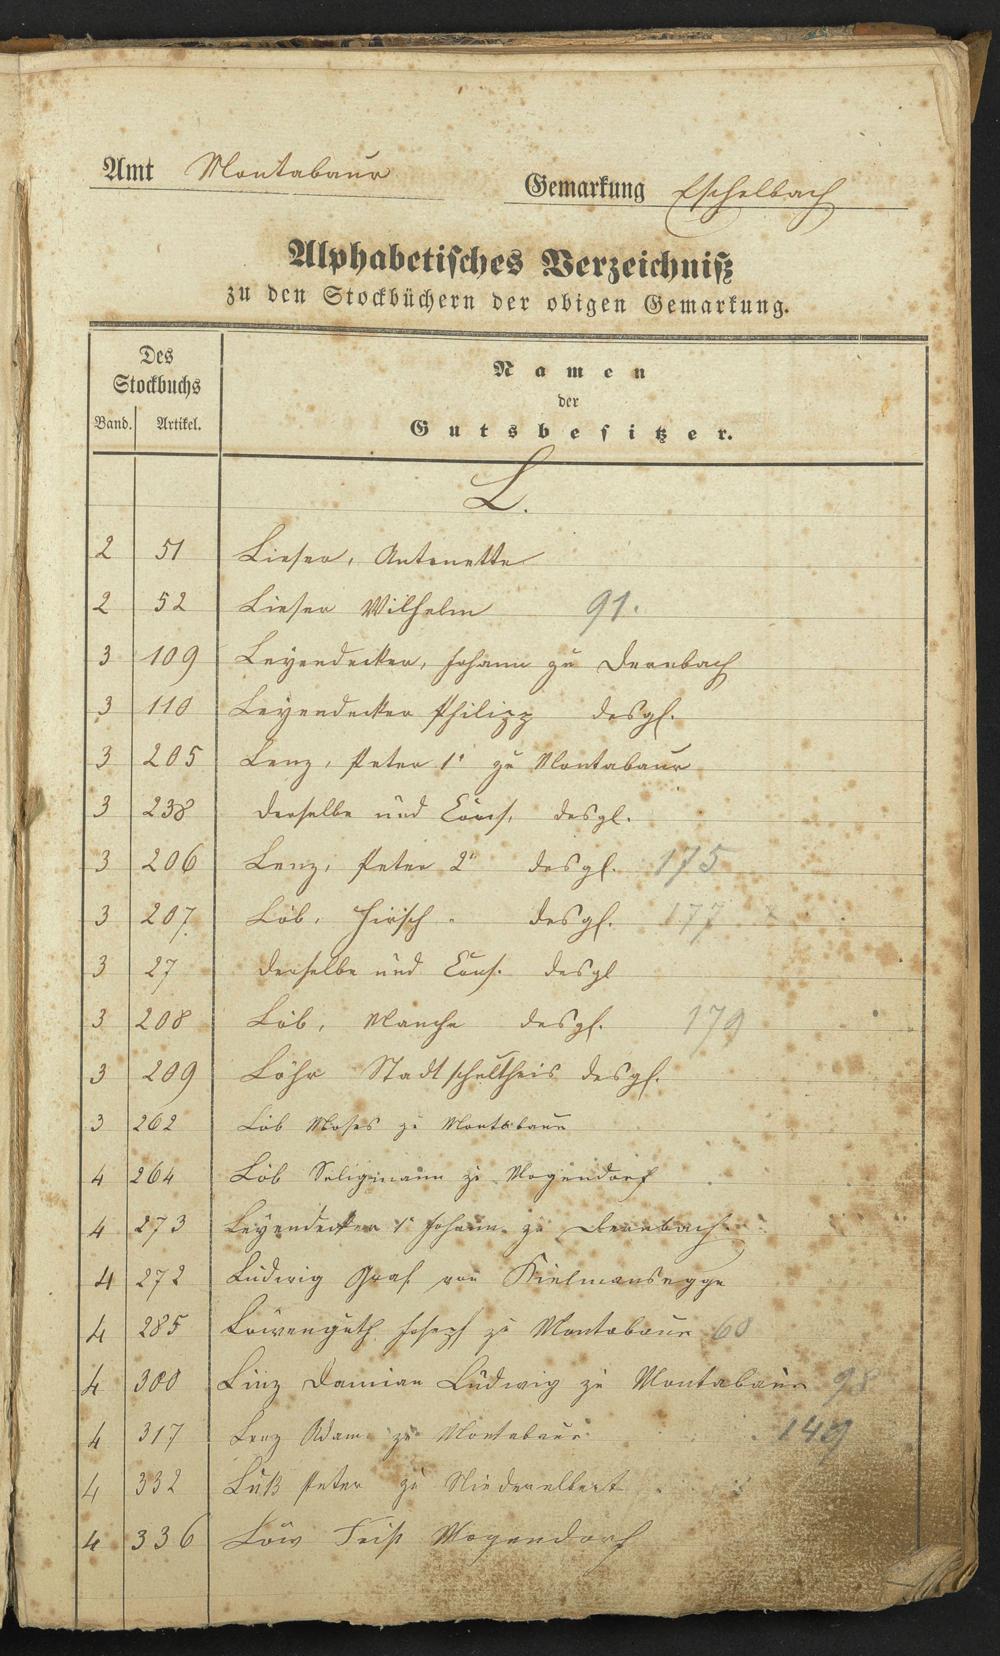 Amt Montabaur
Gemarkung Eschelbach
Alphabetisches Verzeichniß
zu den Stockbüchern der obigen Gemarkung.
Des Stockbuchs
Band. Artikel.
Namen
der
Gutsbesitzer.
L.
2 51 Lieser, Antonette
2 52 Lieser Wilhelm 91.
3 109 Leyendecker, Johann zu Dernbach
3 110 Leyendecker Philipp desgl.
3 205 Lenz, Peter 1r zu Montabaur
3 238 derselbe und Cons. desgl.
3 206 Lenz, Peter 2r desgl. 175
3 207 Löb, Hirsch desgl. 177
3 27 derselbe und Cons. desgl
3 208 Löb, Manche desgl. 179
3 209 Löhr Stadtschultheis desgl.
3 262 Löb Moses zu Montabaur
4 264 Löb Seligmann zu Mogendorf
4 273 Leyendecker 1r Johann zu Dernbach
4 272 Ludwig Graf von Kielmansegge
4 285 Löwenguth Joseph zu Montabaur 60
4 300 Linz Damian Ludwig zu Montabaur 98
4 317 Lenz Adam zu Montabaur 149
4 332 Luß Peter zu Niederelbert
4 336 Löw Feist Mogendorf